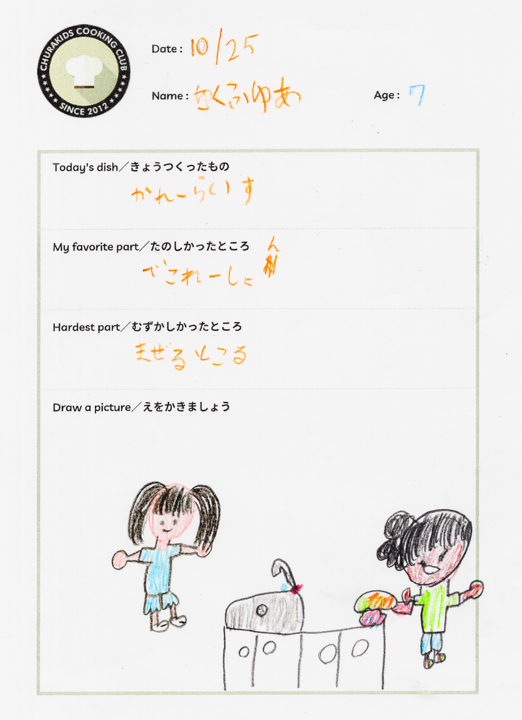 CHURAKIDS COOKING CLUB
SINCE 2012
Date : 10/25
Name :
Age : 7
Today's dish／きょうつくったもの
かれーらいす
My favorite part／たのしかったところ
でこれーしょん
Hardest part／むずかしかったところ
まぜるところ
Draw a picture／えをかきましょう